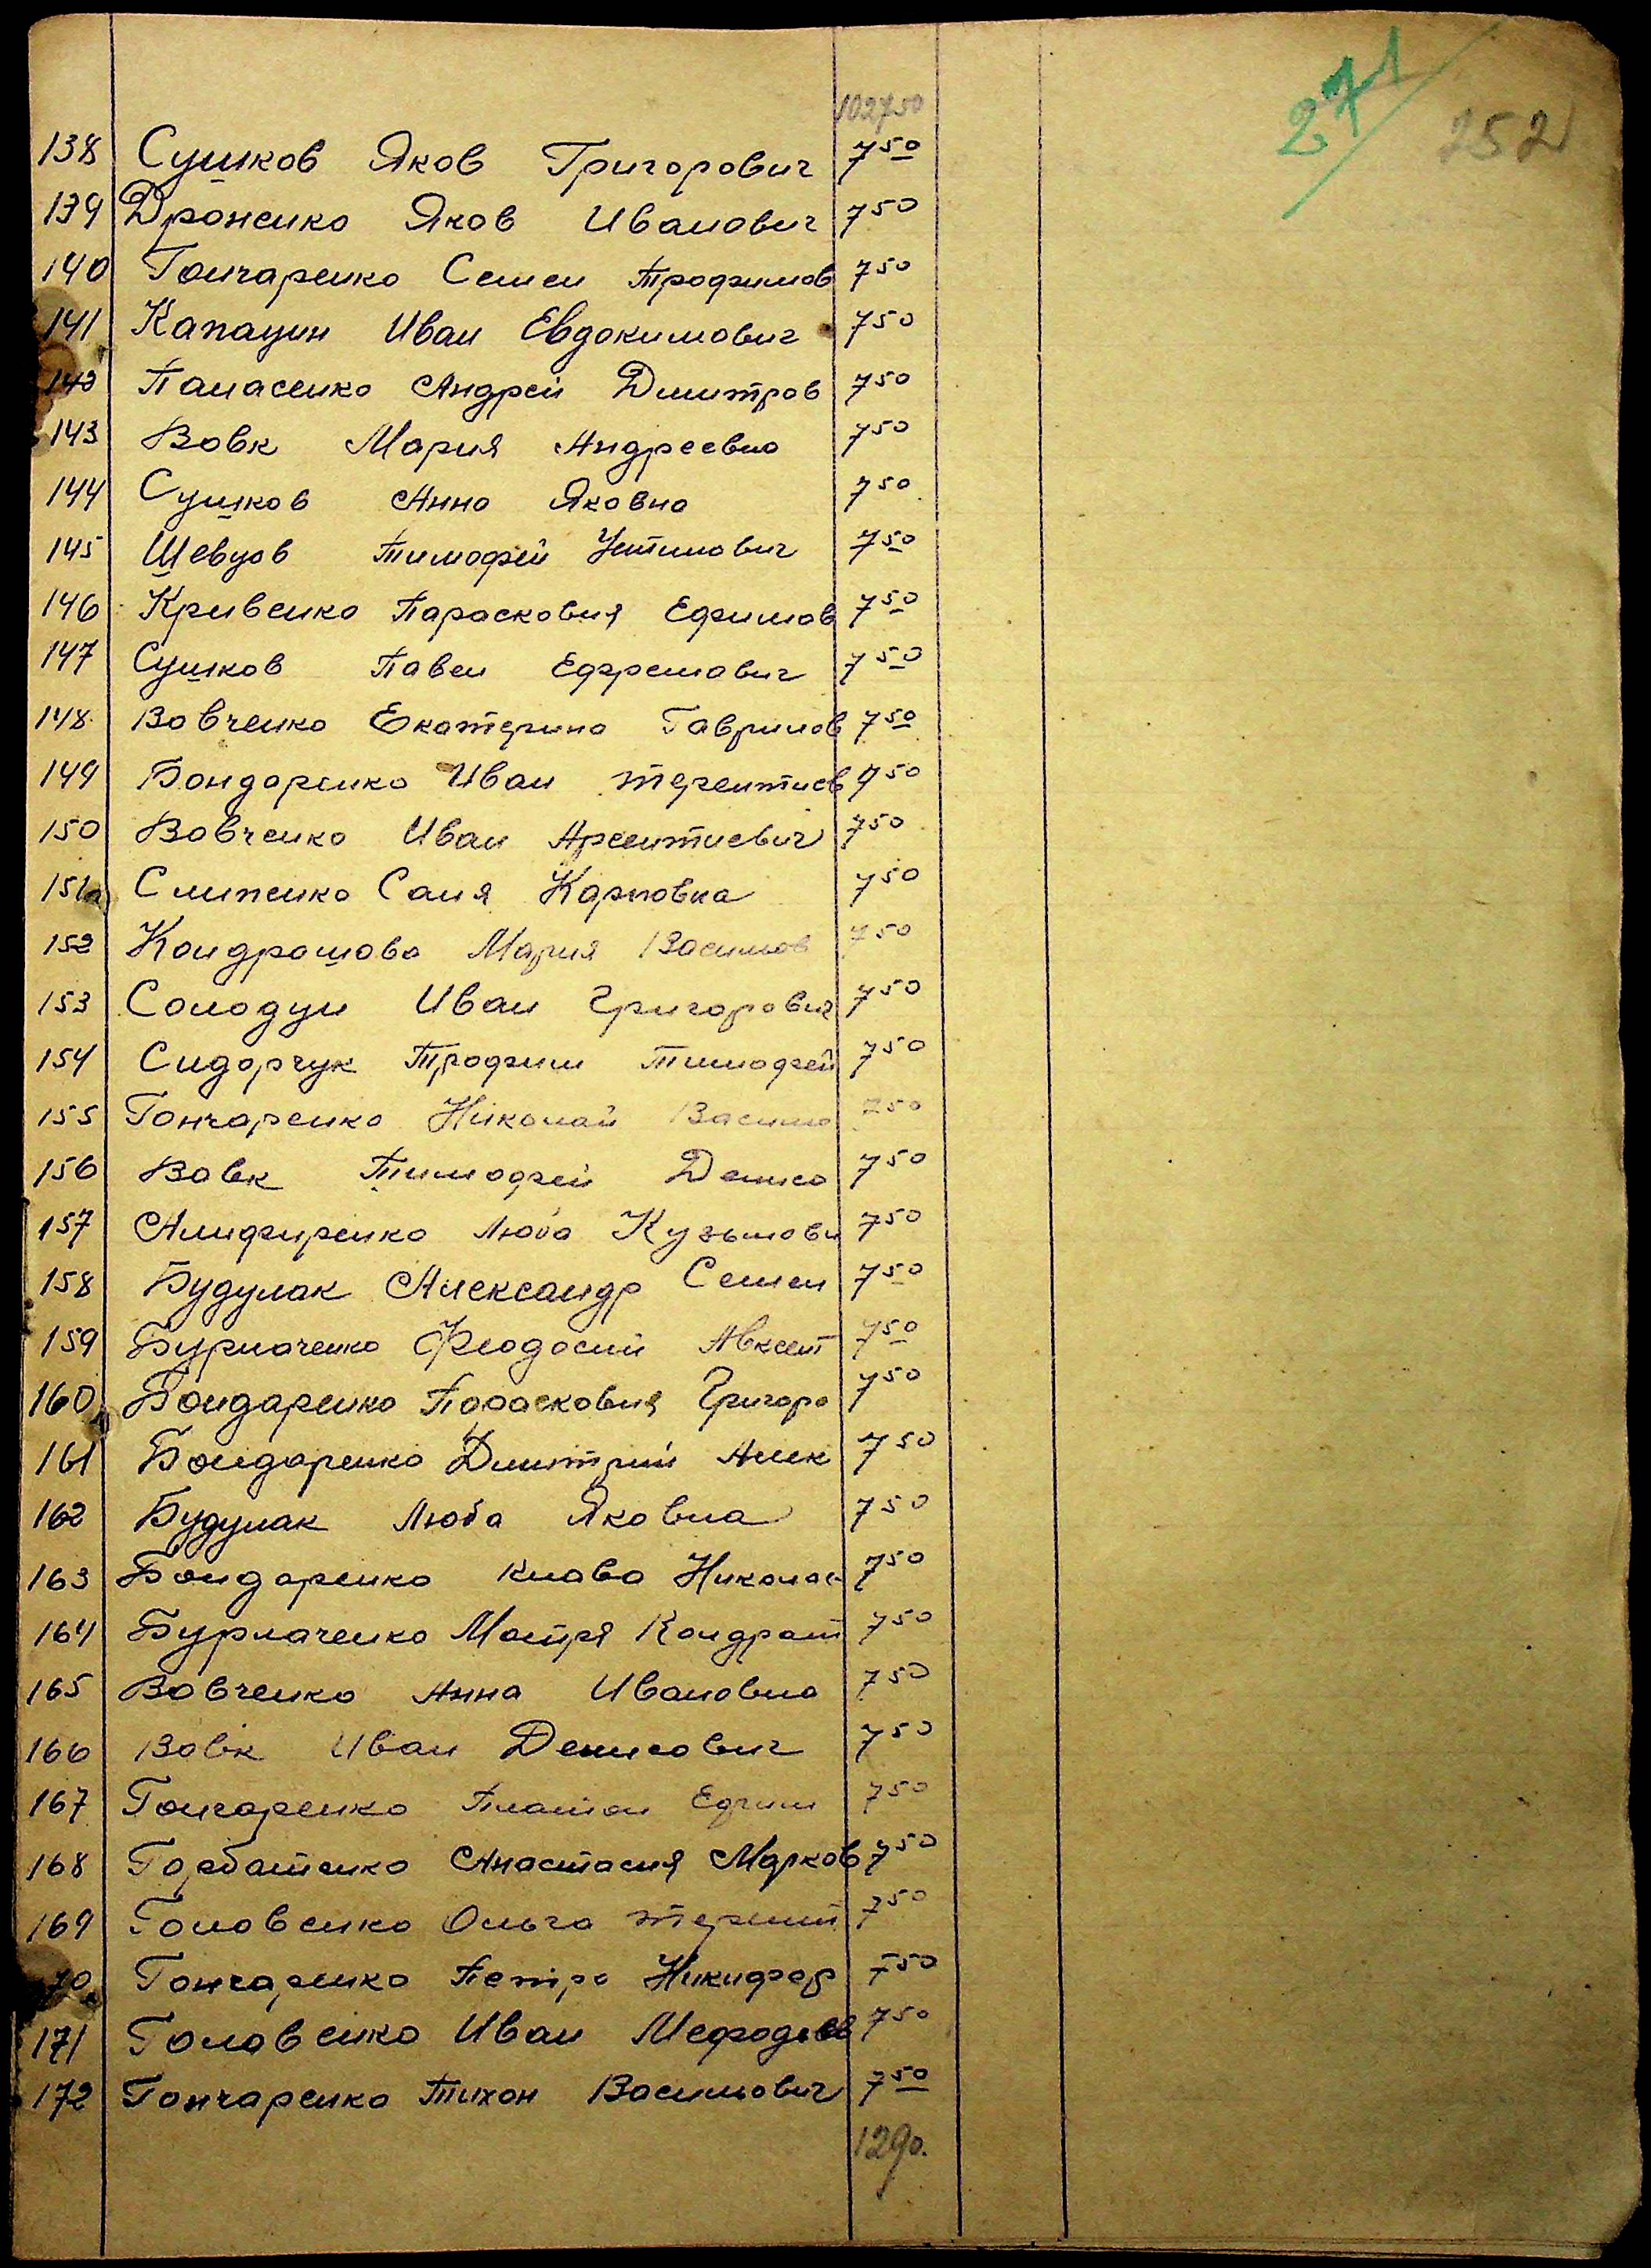 271
252
102750
138 Сушков Яков Григорович 750
139 Дроненко Яков Иванович 750
140 Гончаренко Семен Трофимов 750
141 Капацин Иван Евдокимович 750
142 Панасенко Андрей Дмитров 750
143 Вовк Мария Андреевна 750
144 Сушков Анна Яковна 750
145 Шевцов Тимофей Устинович 750
146 Кривенко Парасковия Ефимов 750
147 Сушков Павел Ефремович 750
148 Вовченко Екатерина Гаврилов 750
149 Бондаренко Иван Терентиев 750
150 Вовченко Иван Арсентиевич 750
151 Слипенко Саня Карповна 750
152 Кондрашова Мария Васильов 750
153 Солодун Иван Григорович 750
154 Сидорчук Трофим Тимофей 750
155 Гончаренко Николай Василь 750
156 Вовк Тимофей Денисо 750
157 Алифиренко Люба Кузьмовн 750
158 Будулак Александр Семен 750
159 Бурлаченко Феодосий Авксент 750
160 Бондаренко Парасковия Григоро 750
161 Бондаренко Дмитрий Алек 750
162 Будулак Люба Яковна 750
163 Бондаренко Клава Николае 750
164 Бурлаченко Мотря Кондрат 750
165 Вовченко Анна Ивановна 750
166 Вовк Иван Денисович 750
167 Гончаренко Платон Ефим 750
168 Горбатенко Анастасия Марков 750
169 Головенко Ольга Терент 750
170 Гончаренко Петро Никифор 750
171 Головенко Иван Мефодев 750
172 Гончаренко Тихон Васильович 750
1290.